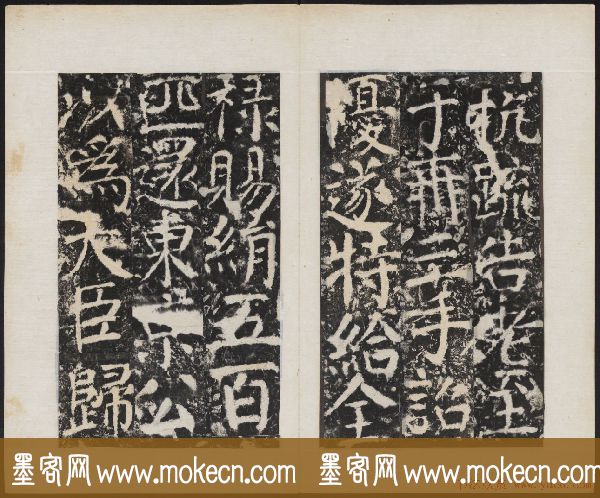 抗疏告老至
于再三手詔
優遂特給全
祿賜絹五百
匹還東京公
以為大臣歸
墨客网 www.mokecn.com
墨客网 www.mokecn.com